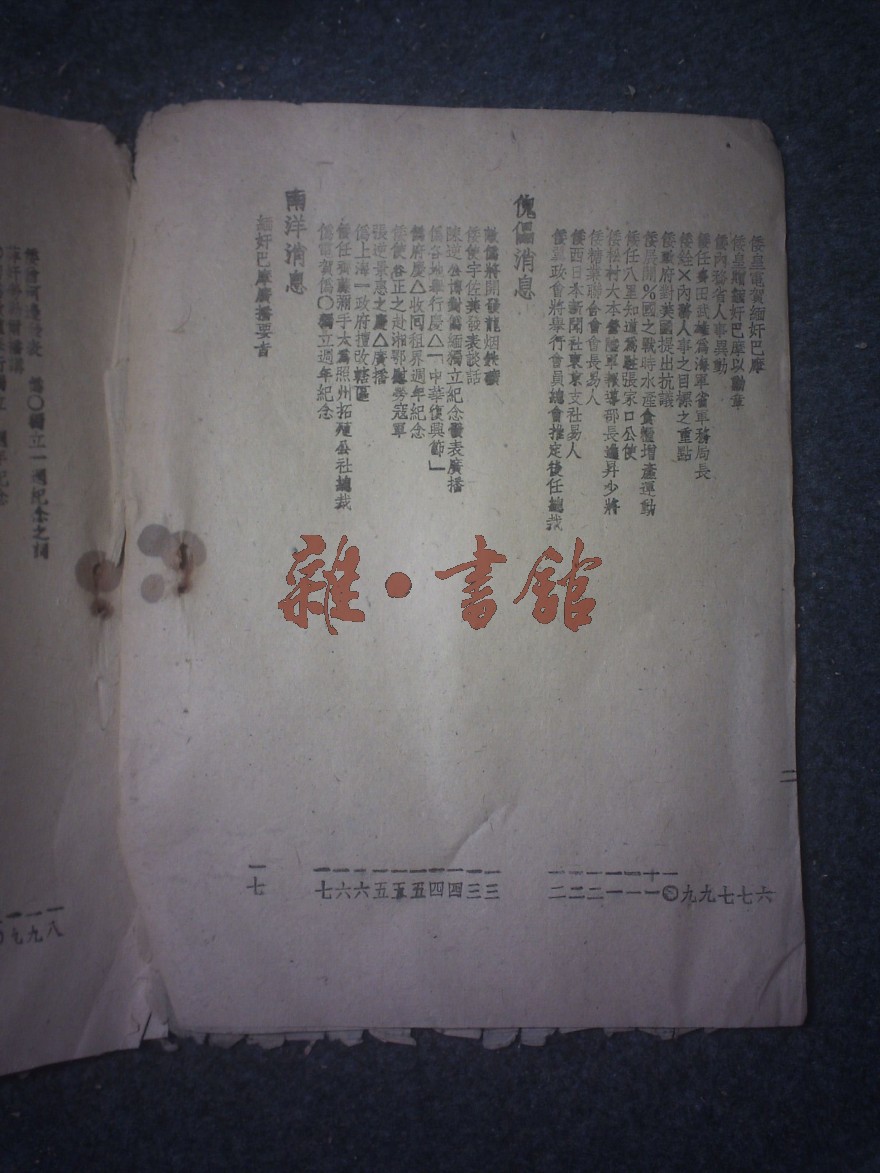 二
倭皇電賀緬奸巴摩
倭皇贈緬奸巴摩以勳章
倭內務省人事異動
倭任 田武雄為海軍省軍務局長
倭 內 人事之目標之重點
倭政府對美國提出抗議
倭展開%國之戰時水產食糧增產運動
倭任八里知道為駐張家口公使
倭 村大本營陸軍報導部長 昇少將
倭 聯合會會長易人
倭西日本新聞社東京支社易人
倭 政會將舉行會員總會推定後任總裁
六
七
七
九
九
一〇
一一
一一
一一
一二
一二
一二
傀儡消息
敵偽將開發龍烟鉄礦
倭使宇佐美發表談話
陳逆公博對 緬獨立紀念發表廣播
偽各地舉行慶△「中華復興節」
偽府慶△收回租界週年紀念
倭使谷正之赴湘鄂慰勞寇軍
張逆景惠之慶△廣播
偽上海一政府擅改轄區
倭任 彌手太為照州拓殖公社總裁
偽電賀偽〇獨立週年紀念
一三
一三
一四
一四
一五
一五
一五
一六
一六
一七
南洋消息
緬奸巴摩廣播要旨
一七
偽〇獨立一週紀念之詞
一八
一九
一九
雜·書館